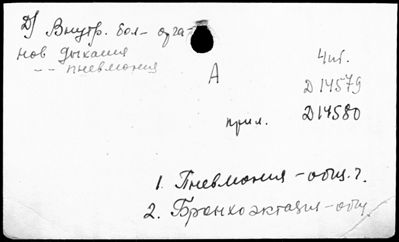 Д) Внутр. бол- орга-
нов дыхания
-- пневмония
А
4иб.
D14579
прил. D14580
1. Пневмония - общ. ч.
2. Бронхоэктазия - общ.